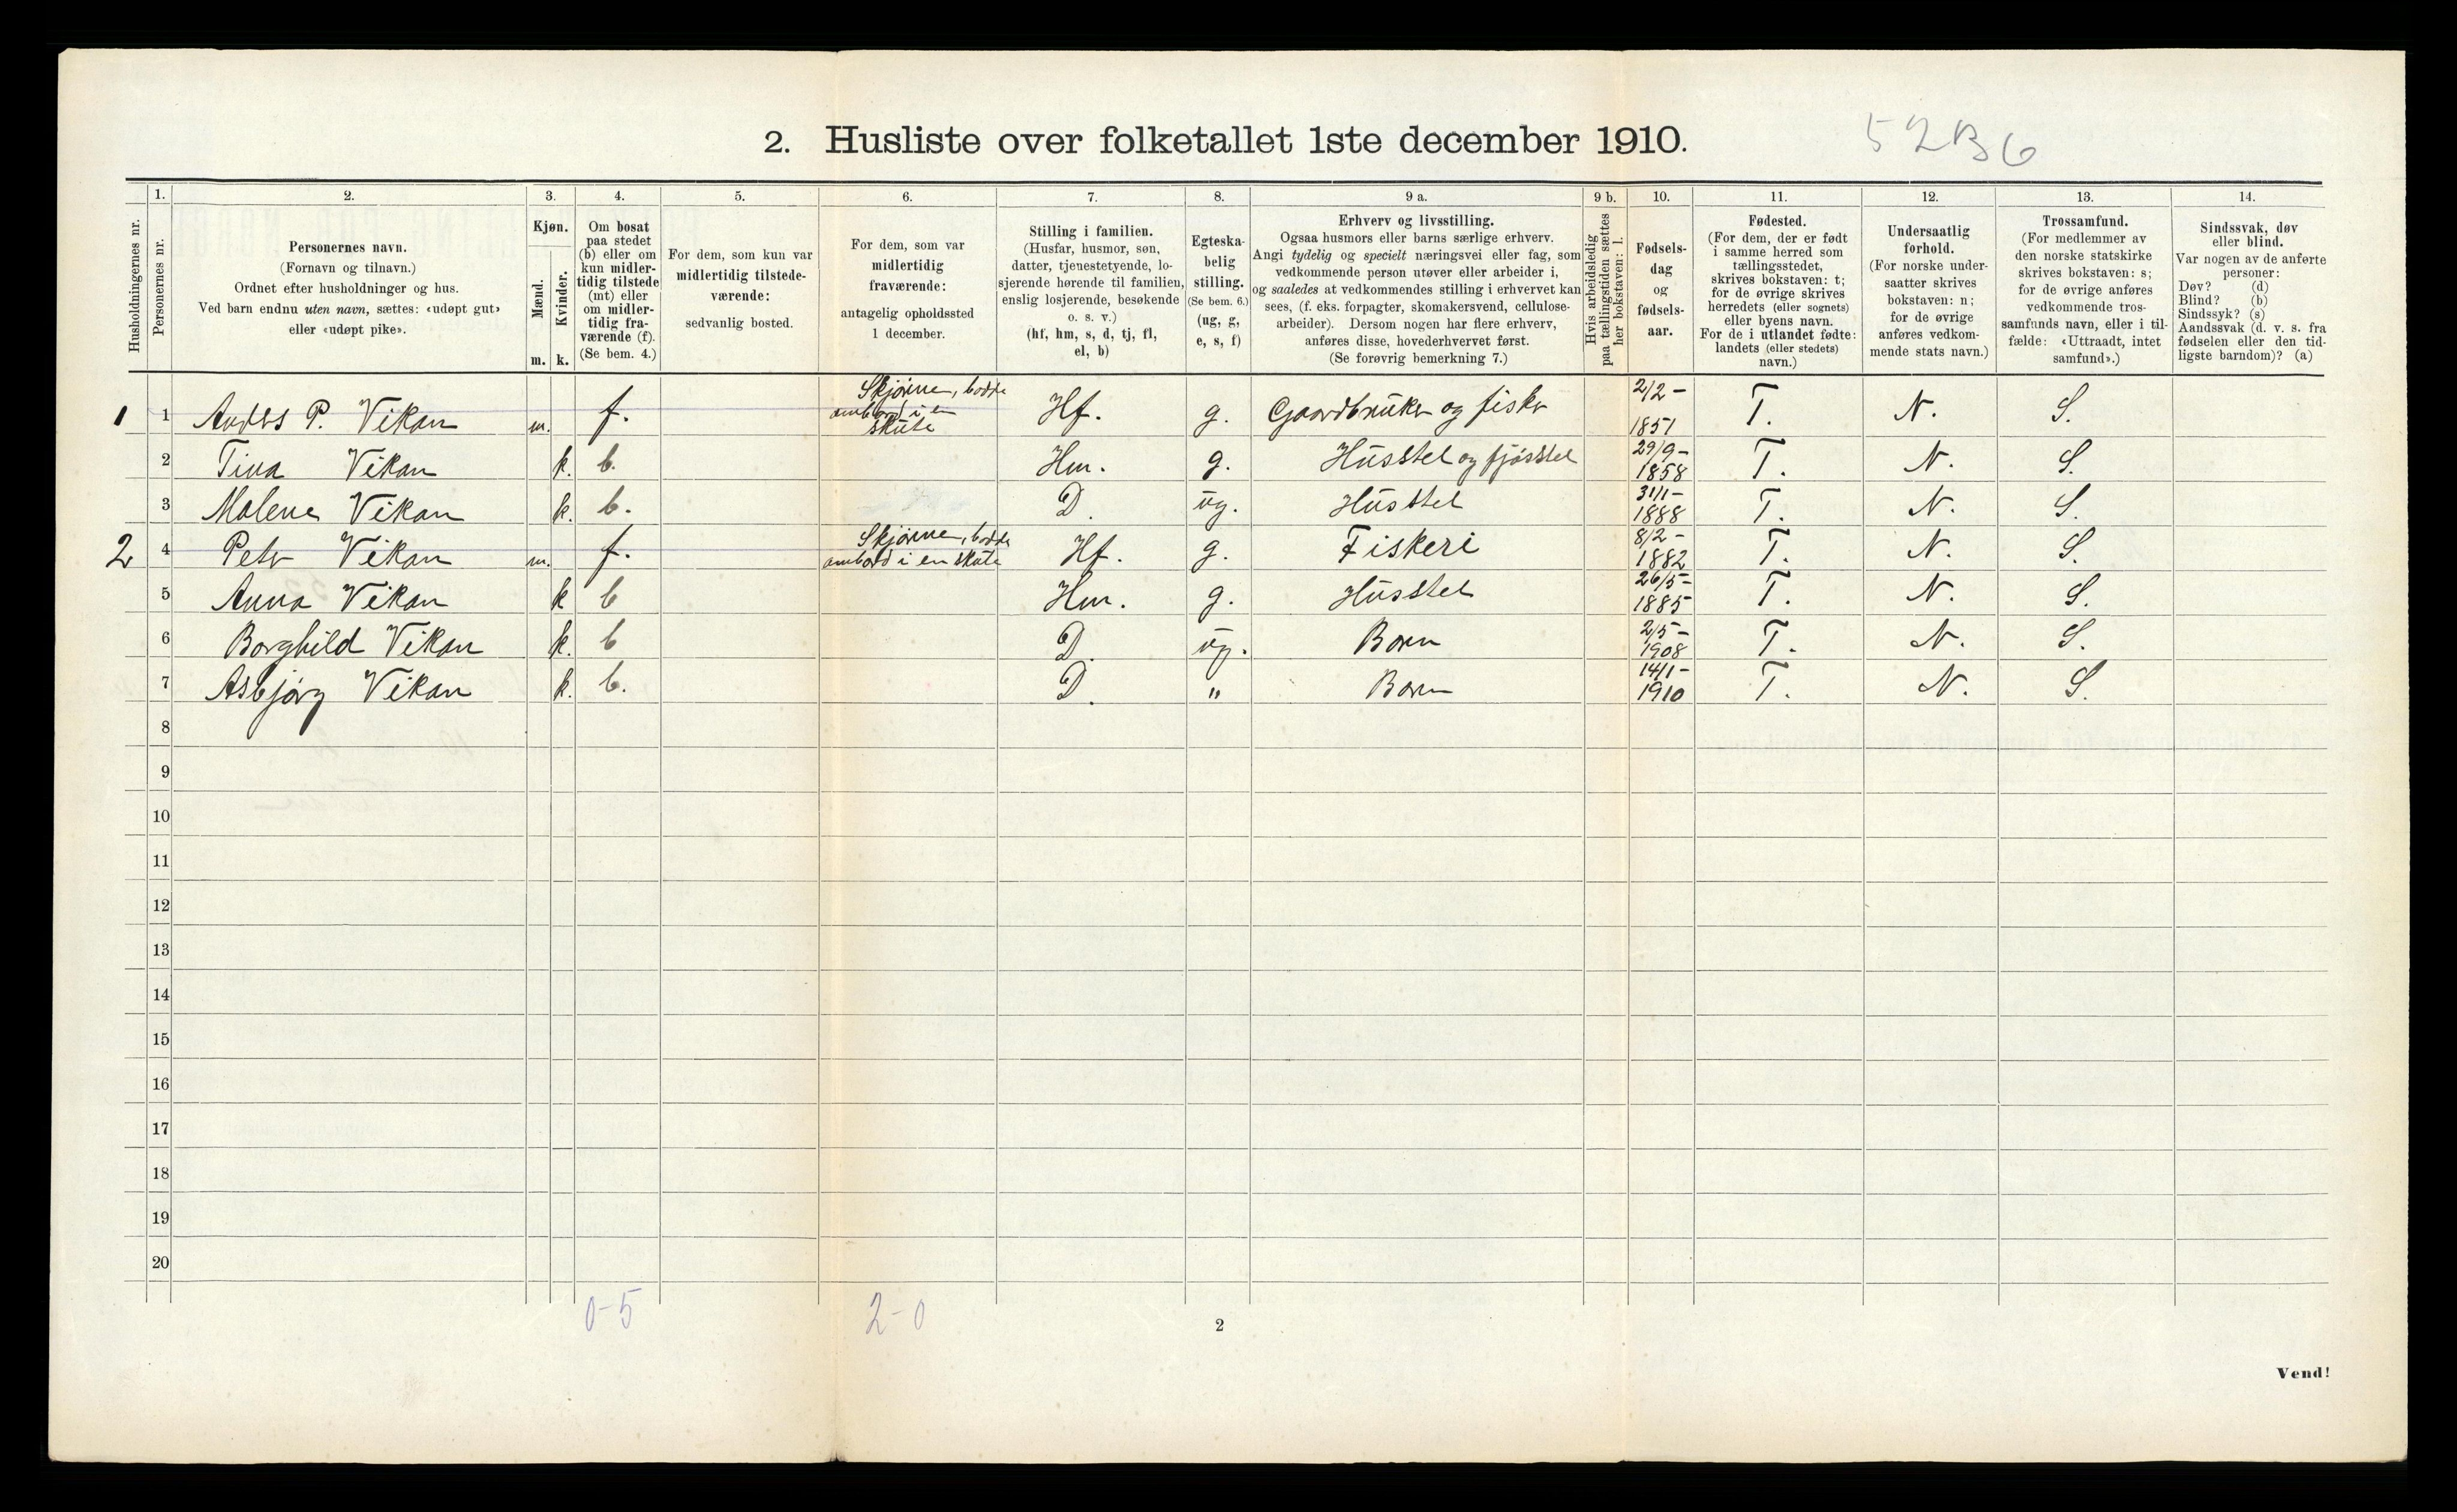 2. Husliste over folketallet 1ste december 1910.
52B6
Husholdningernes nr.
1.
Personernes nr.
2.
Personernes navn.
(Fornavn og tilnavn.)
Ordnet efter husholdninger og hus.
Ved barn endnu uten navn, sættes: «udøpt gut»
eller «udøpt pike».
3.
Kjøn.
Mænd.
Kvinder.
m. k.
4.
Om bosat
paa stedet
(b) eller om
kun midler-
tidig tilstede
(mt) eller
om midler-
tidig fra-
værende (f).
(Se bem. 4.)
5.
For dem, som kun var
midlertidig tilstede-
værende:
sedvanlig bosted.
6.
For dem, som var
midlertidig
fraværende:
antagelig opholdssted
1 december.
7.
Stilling i familien.
(Husfar, husmor, søn,
datter, tjenestetyende, lo-
sjerende hørende til familien,
enslig losjerende, besøkende
o. s. v.)
(hf, hm, s, d, tj, fl,
el, b)
8.
Egteska-
belig
stilling.
(Se bem. 6.)
(ug, g,
e, s, f)
9 a.
Erhverv og livsstilling.
Ogsaa husmors eller barns særlige erhverv.
Angi tydelig og specielt næringsvei eller fag, som
vedkommende person utøver eller arbeider i,
og saaledes at vedkommendes stilling i erhvervet kan
sees, (f. eks. forpagter, skomakersvend, cellulose-
arbeider). Dersom nogen har flere erhverv,
anføres disse, hovederhvervet først.
(Se forøvrig bemerkning 7.)
9 b.
Hvis arbeidsledig
paa tællingstiden sættes
her bokstaven: l.
10.
Fødsels-
dag
og
fødsels-
aar.
11.
Fødested.
(For dem, der er født
i samme herred som
tællingsstedet,
skrives bokstaven: t;
for de øvrige skrives
herredets (eller sognets)
eller byens navn.
For de i utlandet fødte:
landets (eller stedets)
navn.)
12.
Undersaatlig
forhold.
(For norske under-
saatter skrives
bokstaven: n;
for de øvrige
anføres vedkom-
mende stats navn.)
13.
Trossamfund.
(For medlemmer av
den norske statskirke
skrives bokstaven: s;
for de øvrige anføres
vedkommende tros-
samfunds navn, eller i til-
fælde: «Uttraadt, intet
samfund».)
14.
Sindssvak, døv
eller blind.
Var nogen av de anførte
personer:
Døv? (d)
Blind? (b)
Sindssyk? (s)
Aandssvak (d. v. s. fra
fødselen eller den tid-
ligste barndom)? (a)
1 1 Anders P. Vikan m. f. Skjörne, bodde ombord i en skute Hf. g. Gaardbruker og fisker 2/2- 1851 T. N. S.
2 Tina Vikan k. b. Hm. g. Husstel og fjösstel 29/9- 1858 T. N. S.
3 Malene Vikan k. b. D. ug. Husstel 31/1- 1888 T. N. S.
2 4 Peter Vikan m. f. Skjörne, bodde ombord i en skute Hf. g. Fiskeri 8/2- 1882 T. N. S.
5 Anna Vikan k b Hm. g. Husstel 26/5- 1885 T. N. S.
6 Borghild Vikan k. b D. ug. Barn 2/5- 1908 T. N. S.
7 Asbjörg Vikan k. b. D. " Barn 14/1- 1910 T. N. S.
8
9
10
11
12
13
14
15
16
17
18
19
20
0-5
2-0
2
Vend!